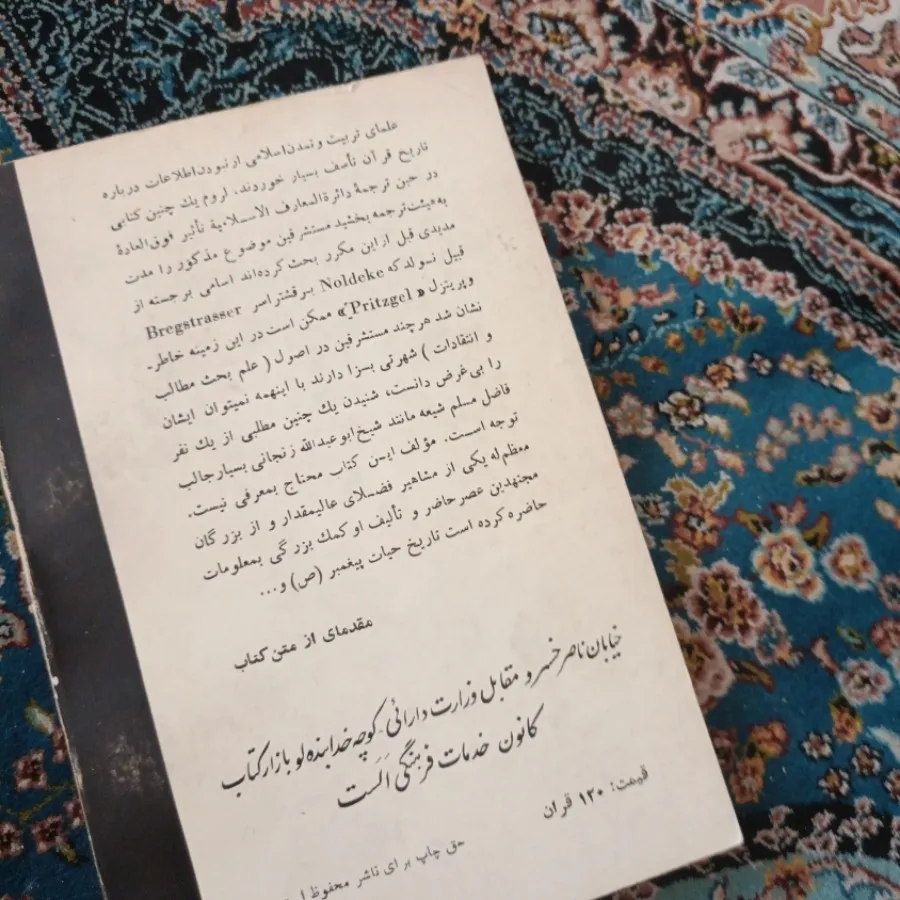 علمای تربیت و تمدن اسلامی از نبودن اطلاعات درباره
تاریخ قرآن تأسف بسیار خوردند، لزوم یك چنین کتابی
در حین ترجمهٔ دائرةالمعارف الاسلامیة تأثیر فوق‌العادهٔ
به‌هیئت ترجمه بخشید مستشرقین موضوع مذکور را مدت
مدیدی قبل از این مکرر بحث کرده‌اند اسامی برجسته از
قبیل نسولد که Noldeke برقشتراسر Bregstrasser
وپریتزل «Pritzgel» ممکن است در این زمینه خاطر-
نشان شد هرچند مستشرقین در اصول ( علم بحث مطالب
و انتقادات ) شهرتی بسزا دارند با اینهمه نمیتوان ایشان
را بی‌غرض دانست، شنیدن یك چنین مطلبی از یك نفر
فاضل مسلم شیعه مانند شیخ ابوعبدالله زنجانی بسیار جالب
توجه است. مؤلف این کتاب محتاج بمعرفی نیست.
معظم‌له یکی از مشاهیر فضلای عالیمقدار و از بزرگان
مجتهدین عصر حاضر و تألیف او کمك بزرگی بمعلومات
حاضره کرده است تاریخ حیات پیغمبر (ص) و...
مقدمه‌ای از متن کتاب
خیابان ناصر خسرو مقابل وزارت دارائی-کوچه خدابنده‌لو بازار کتاب
کانون خدمات فرهنگی اَلَست
قیمت: ۱۲۰ قران
حق چاپ برای ناشر محفوظ